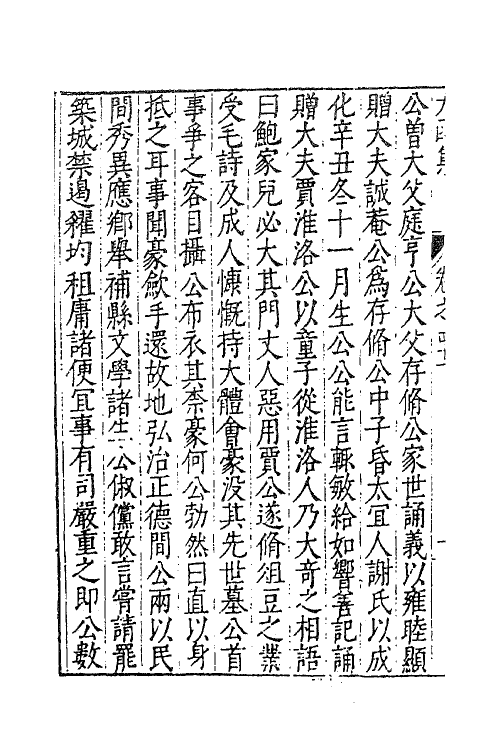 公曾大父庭亨公大父存脩公家世誦義以雍睦顯
贈大夫誠菴公爲存脩公中子昏太宜人謝氏以成
化辛丑冬十一月生公公能言輒敏給如響善記誦
贈大夫賈淮洛公以童子從淮洛人乃大奇之相語
曰鮑家兒必大其門丈人惡用賈公遂脩俎豆之業
受毛詩及成人慷慨持大體會豪没其先世墓公首
事爭之客目攝公布衣其柰豪何公勃然曰直以身
抵之耳事聞豪斂手還故地弘治正德間公兩以民
間秀異應鄉舉補縣文學諸生公俶儻敢言嘗請罷
築城禁遏糴均租庸諸便冝事有司嚴重之即公數